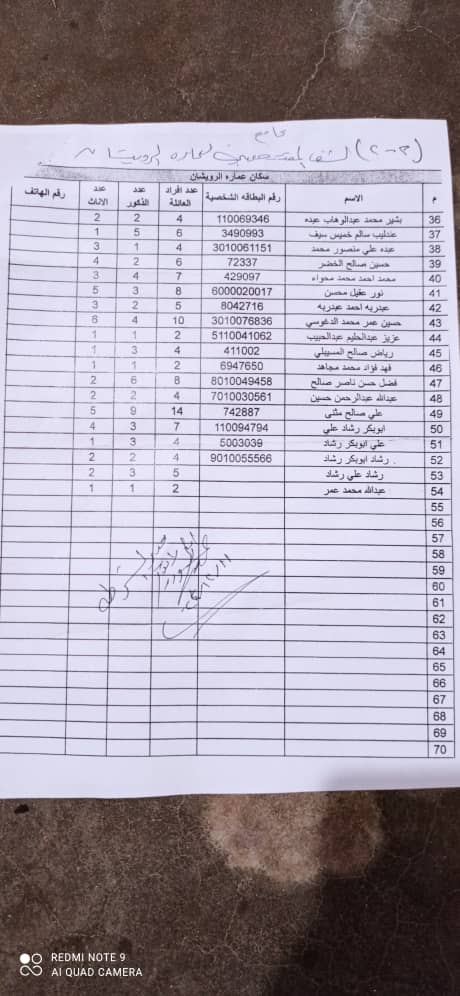 (٢-٣)
سكان عمارة الرويشان
م الاسم رقم البطاقه الشخصية عدد افراد العائلة عدد الذكور عدد الاناث رقم الهاتف
36 بشير محمد عبدالوهاب عبده 110069346 4 2 2
37 عندليب سالم خميس سيف 3490993 6 5 1
38 عبده علي منصور محمد 3010061151 4 1 3
39 حسين صالح الخضر 72337 6 2 4
40 محمد احمد محمد محواء 429097 7 4 3
41 نور عقيل محسن 6000020017 8 3 5
42 عبدربه احمد عبدربه 8042716 5 2 3
43 حسين عمر محمد الدغوسي 3010076836 10 4 6
44 عزيز عبدالحليم عبدالحبيب 5110041062 2 1 1
45 رياض صالح المسيبلي 411002 4 3 1
46 فهد فؤاد محمد مجاهد 6947650 2 1 1
47 فضل حسن ناصر صالح 8010049458 8 6 2
48 عبدالله عبدالرحمن حسين 7010030561 4 2 2
49 علي صالح مثنى 742887 14 9 5
50 ابوبكر رشاد علي 110094794 7 3 4
51 علي ابوبكر رشاد 5003039 4 3 1
52 رشاد ابوبكر رشاد . 9010055566 4 2 2
53 رشاد علي رشاد 5 3 2
54 عبدالله محمد عمر 2 1 1
55
56
57
58
59
60
61
62
63
64
65
66
67
68
69
70
REDMI NOTE 9
AI QUAD CAMERA